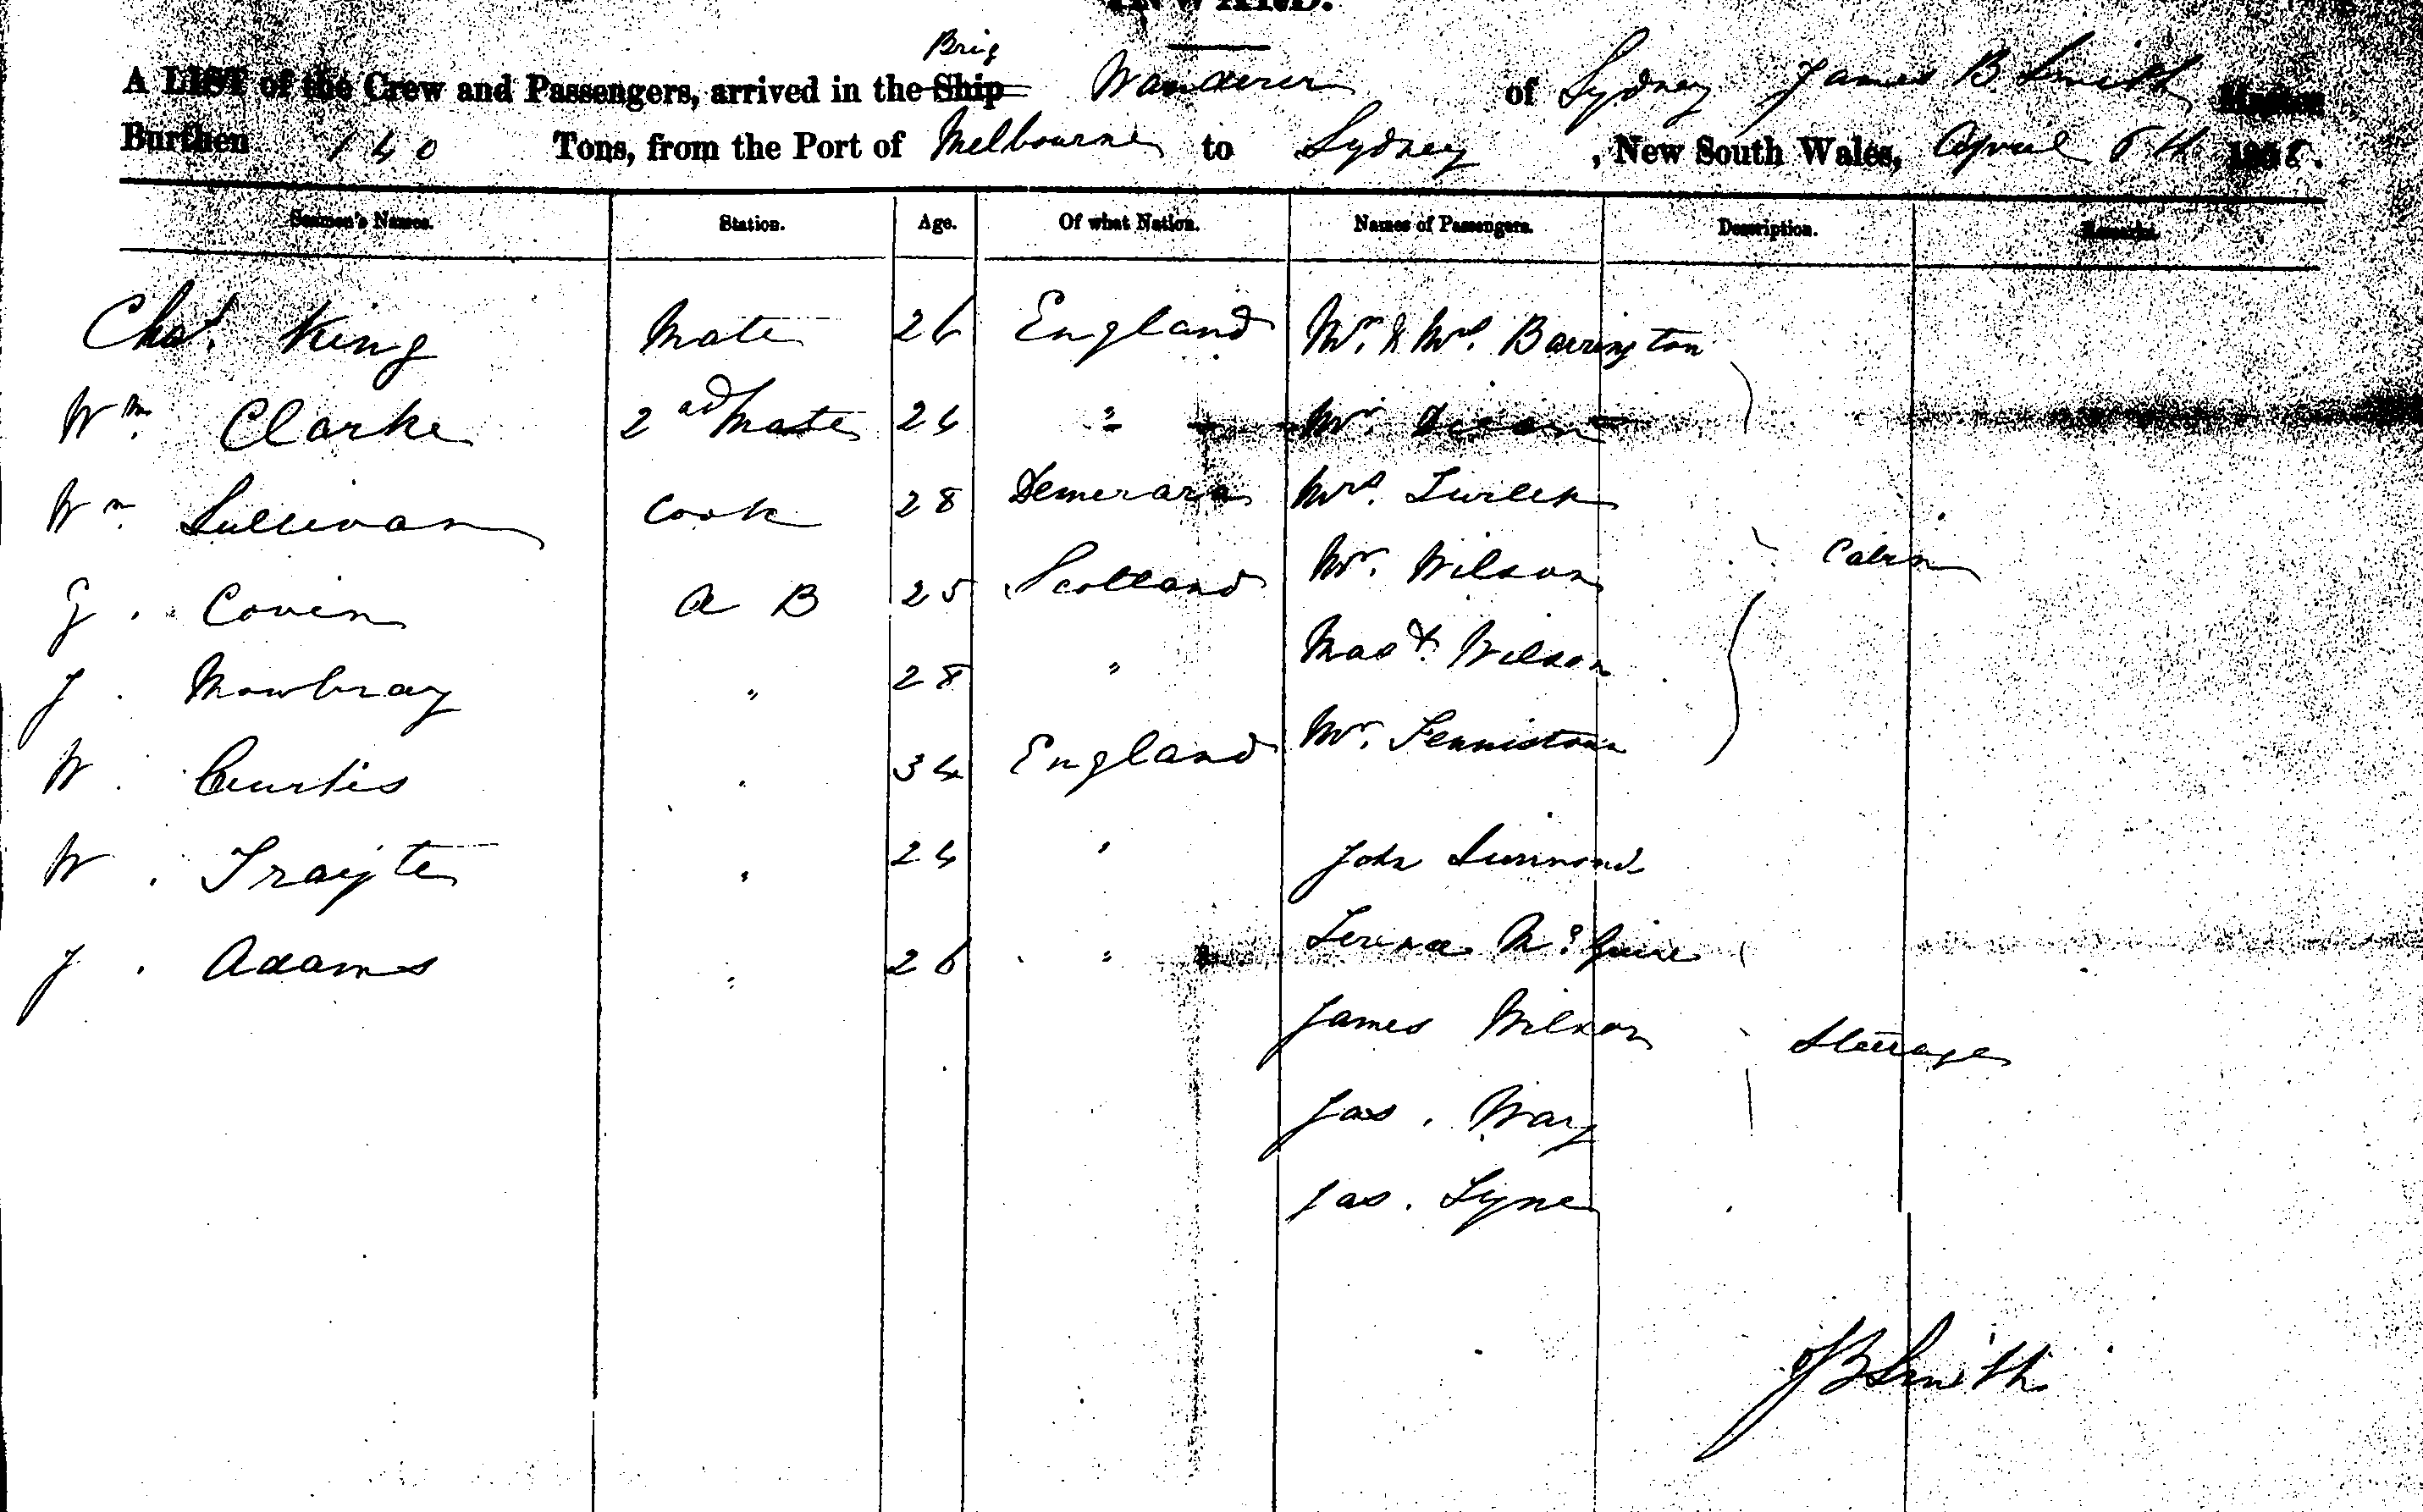 INWARD.
Brig
A LIST of the Crew and Passengers, arrived in the Ship Wanderer of Sydney James B. Smith Master
Burthen 140 Tons, from the Port of Melbourne to Sydney, New South Wales, April 6th
Seamen's Names. Station. Age. Of what Nation. Names of Passengers. Description. Remarks.
Chas. King Mate 26 England Mr. & Mrs. Barrington
Wm. Clarke 2nd Mate 24 " Mr. Dixon
Wm. Sullivan Cook 28 Demerara Mrs.
G. Covin A B 25 Scotland Mr. Wilson Cabin
J. Mowbray " 28 " Mast. Wilson
W. Curtis " 34 England Mr.
W. " 24 " John
J. Adams " 26 " Terence McGuire
James Steerage
Jas. Way
Jas. Lyne
J B Smith